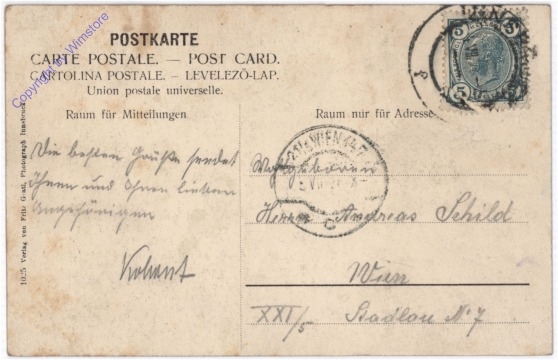 POSTKARTE
CARTE POSTALE. — POST CARD.
CARTOLINA POSTALE. — LEVELEZŐ-LAP.
Union postale universelle.
Raum für Mitteilungen
Raum nur für Adresse
Die besten Grüße sendet
Ihnen und Ihren lieben
Angehörigen
Wohlgeboren
Herrn Andreas Schild
Wien
XXI/5 Stadlau No 7
1025 Verlag von Fritz Gratl, Photograph Innsbruck
Copyright by Wimstore
5 5
LIENZ
WIEN